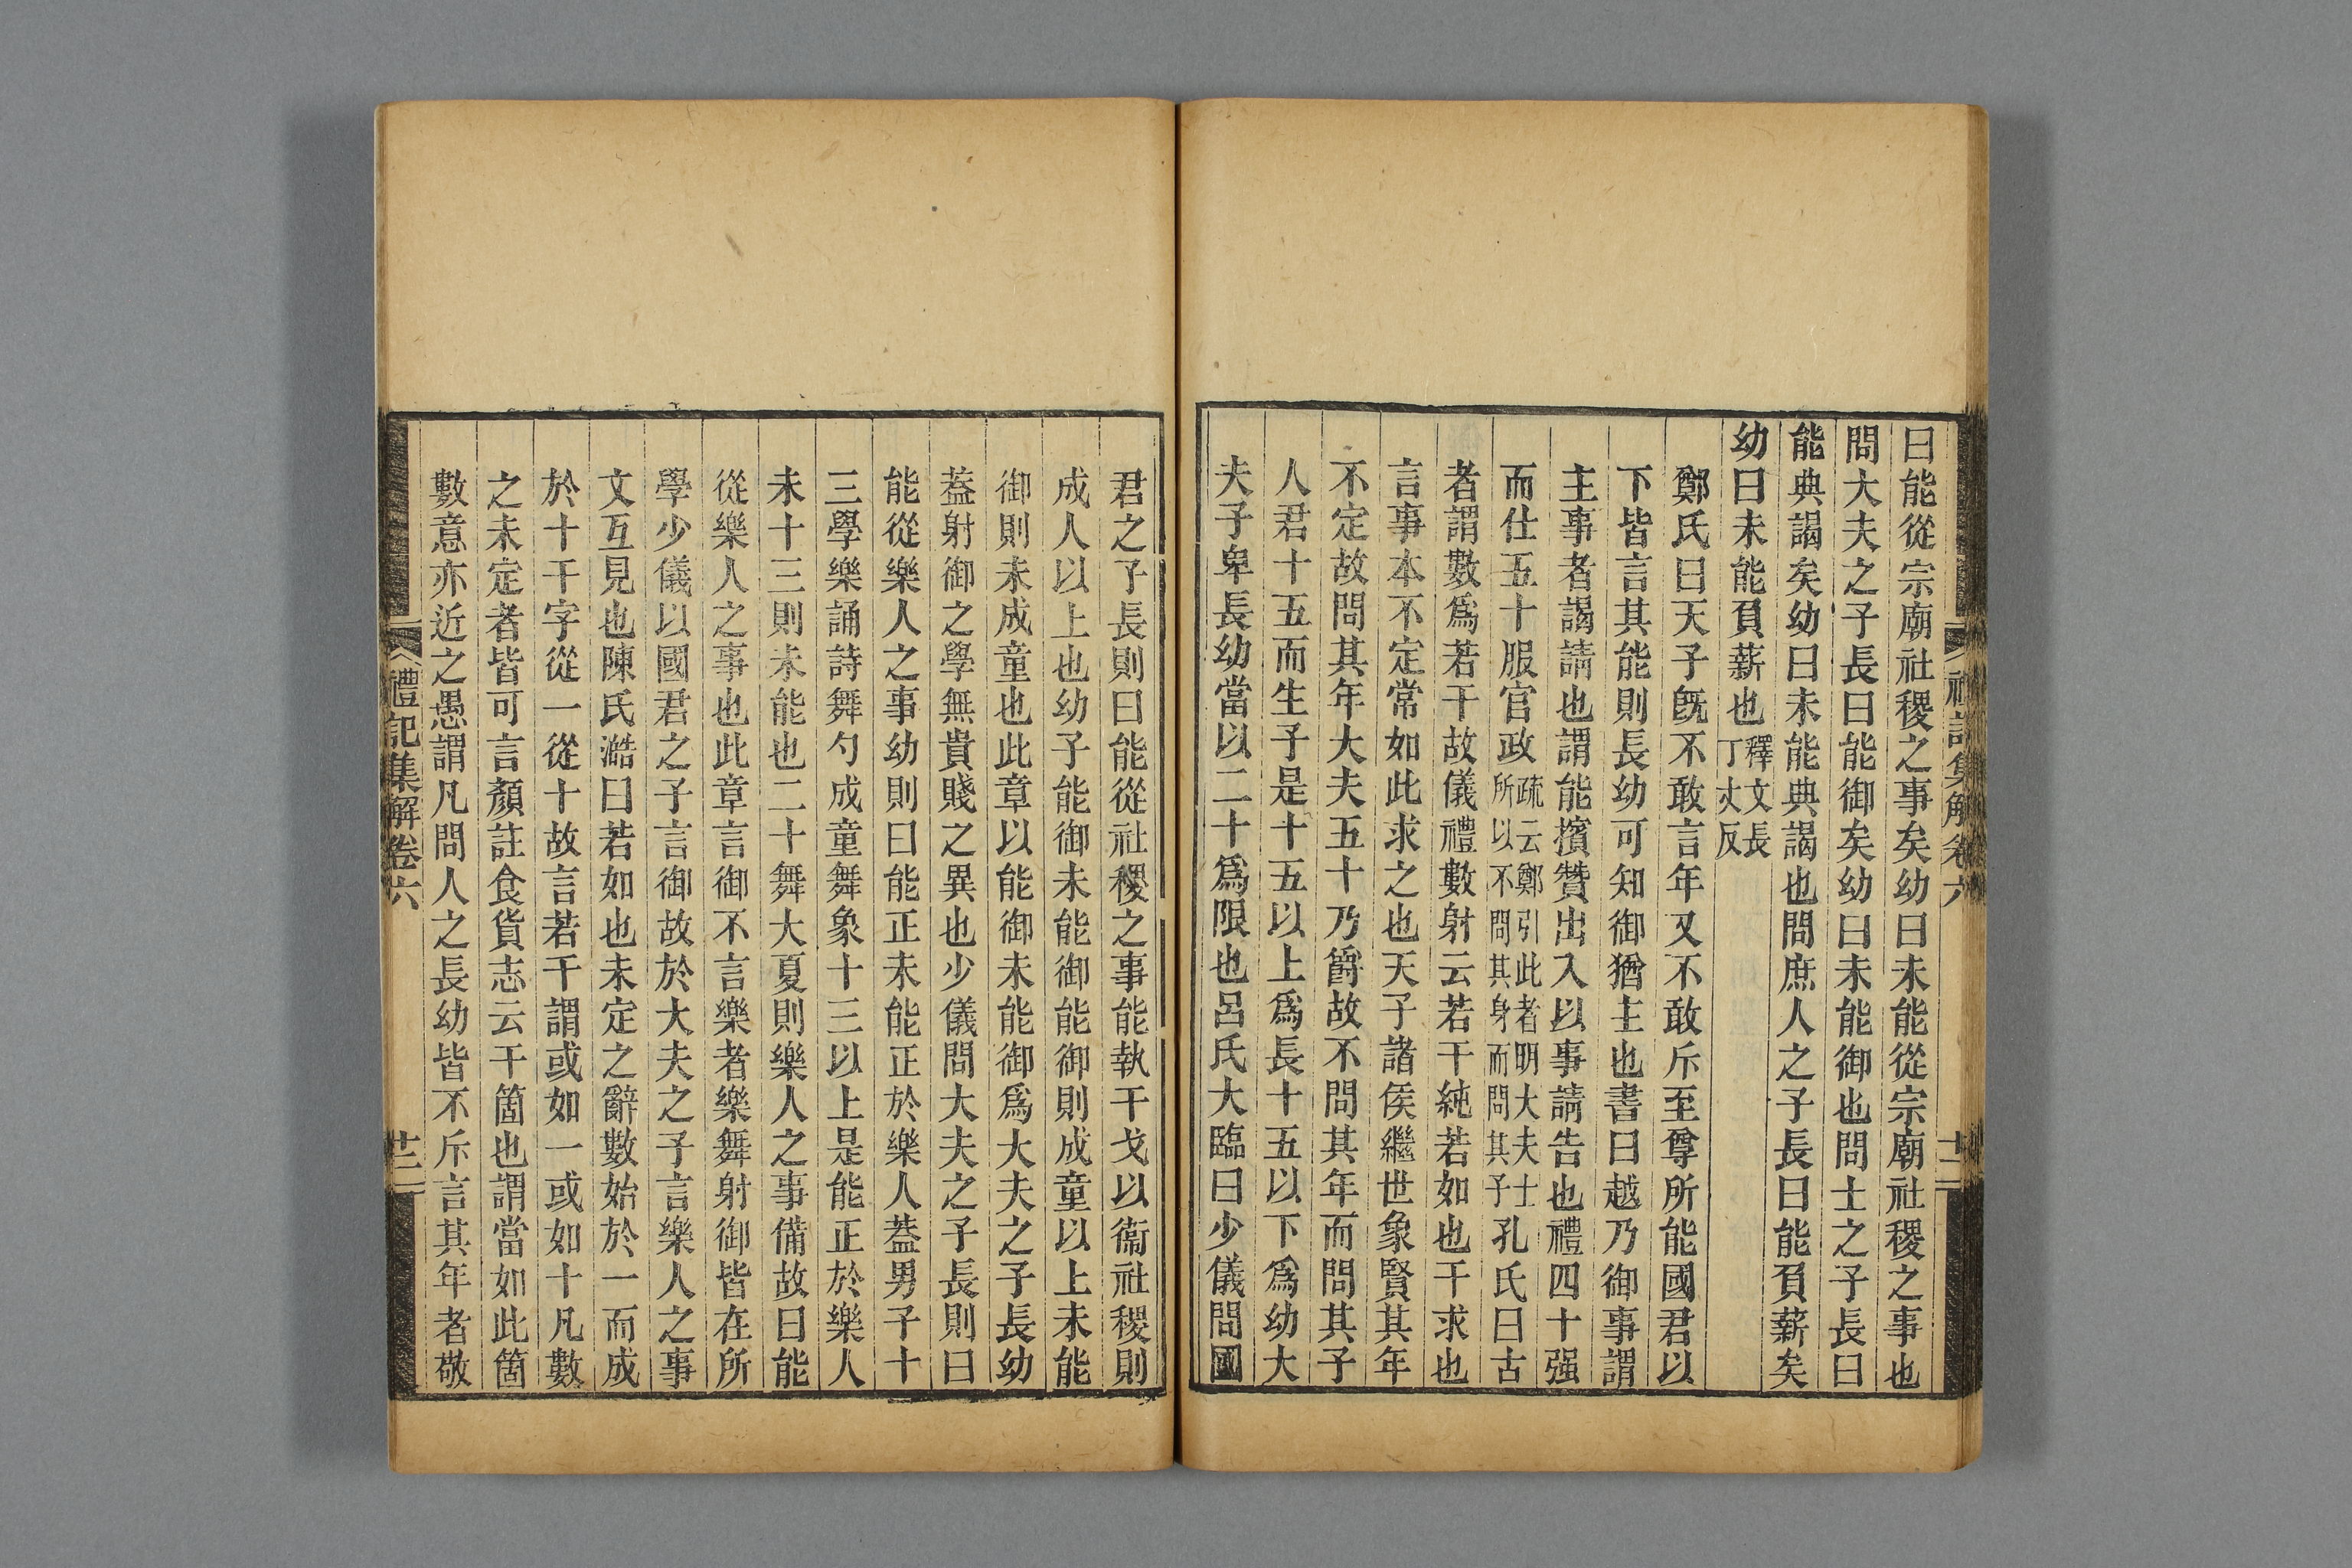 曰能從宗廟社稷之事矣幼曰未能從宗廟社稷之事也
問大夫之子長曰能御矣幼曰未能御也問士之子長曰
能典謁矣幼曰未能典謁也問庶人之子長曰能負薪矣
幼曰未能負薪也釋文長丁丈反
鄭氏曰天子旣不敢言年又不敢斥至尊所能國君以
下皆言其能則長幼可知御猶主也書曰越乃御事謂
主事者謁請也謂能擯贊出入以事請告也禮四十强
而仕五十服官政疏云鄭引此者明大夫士所以不問其身而問其子孔氏曰古
者謂數爲若干故儀禮數射云若干純若如也干求也
言事本不定常如此求之也天子諸侯繼世象賢其年
不定故問其年大夫五十乃爵故不問其年而問其子
人君十五而生子是十五以上爲長十五以下爲幼大
夫子卑長幼當以二十爲限也呂氏大臨曰少儀問國
君之子長則曰能從社稷之事能執干戈以衞社稷則
成人以上也幼子能御未能御能御則成童以上未能
御則未成童也此章以能御未能御爲大夫之子長幼
葢射御之學無貴賤之異也少儀問大夫之子長則曰
能從樂人之事幼則曰能正未能正於樂人葢男子十
三學樂誦詩舞勺成童舞象十三以上是能正於樂人
未十三則未能也二十舞大夏則樂人之事備故曰能
從樂人之事也此章言御不言樂者樂舞射御皆在所
學少儀以國君之子言御故於大夫之子言樂人之事
文互見也陳氏澔曰若如也未定之辭數始於一而成
於十干字從一從十故言若干謂或如一或如十凡數
之未定者皆可言顏註食貨志云干箇也謂當如此箇
數意亦近之愚謂凡問人之長幼皆不斥言其年者敬
禮記集解卷六